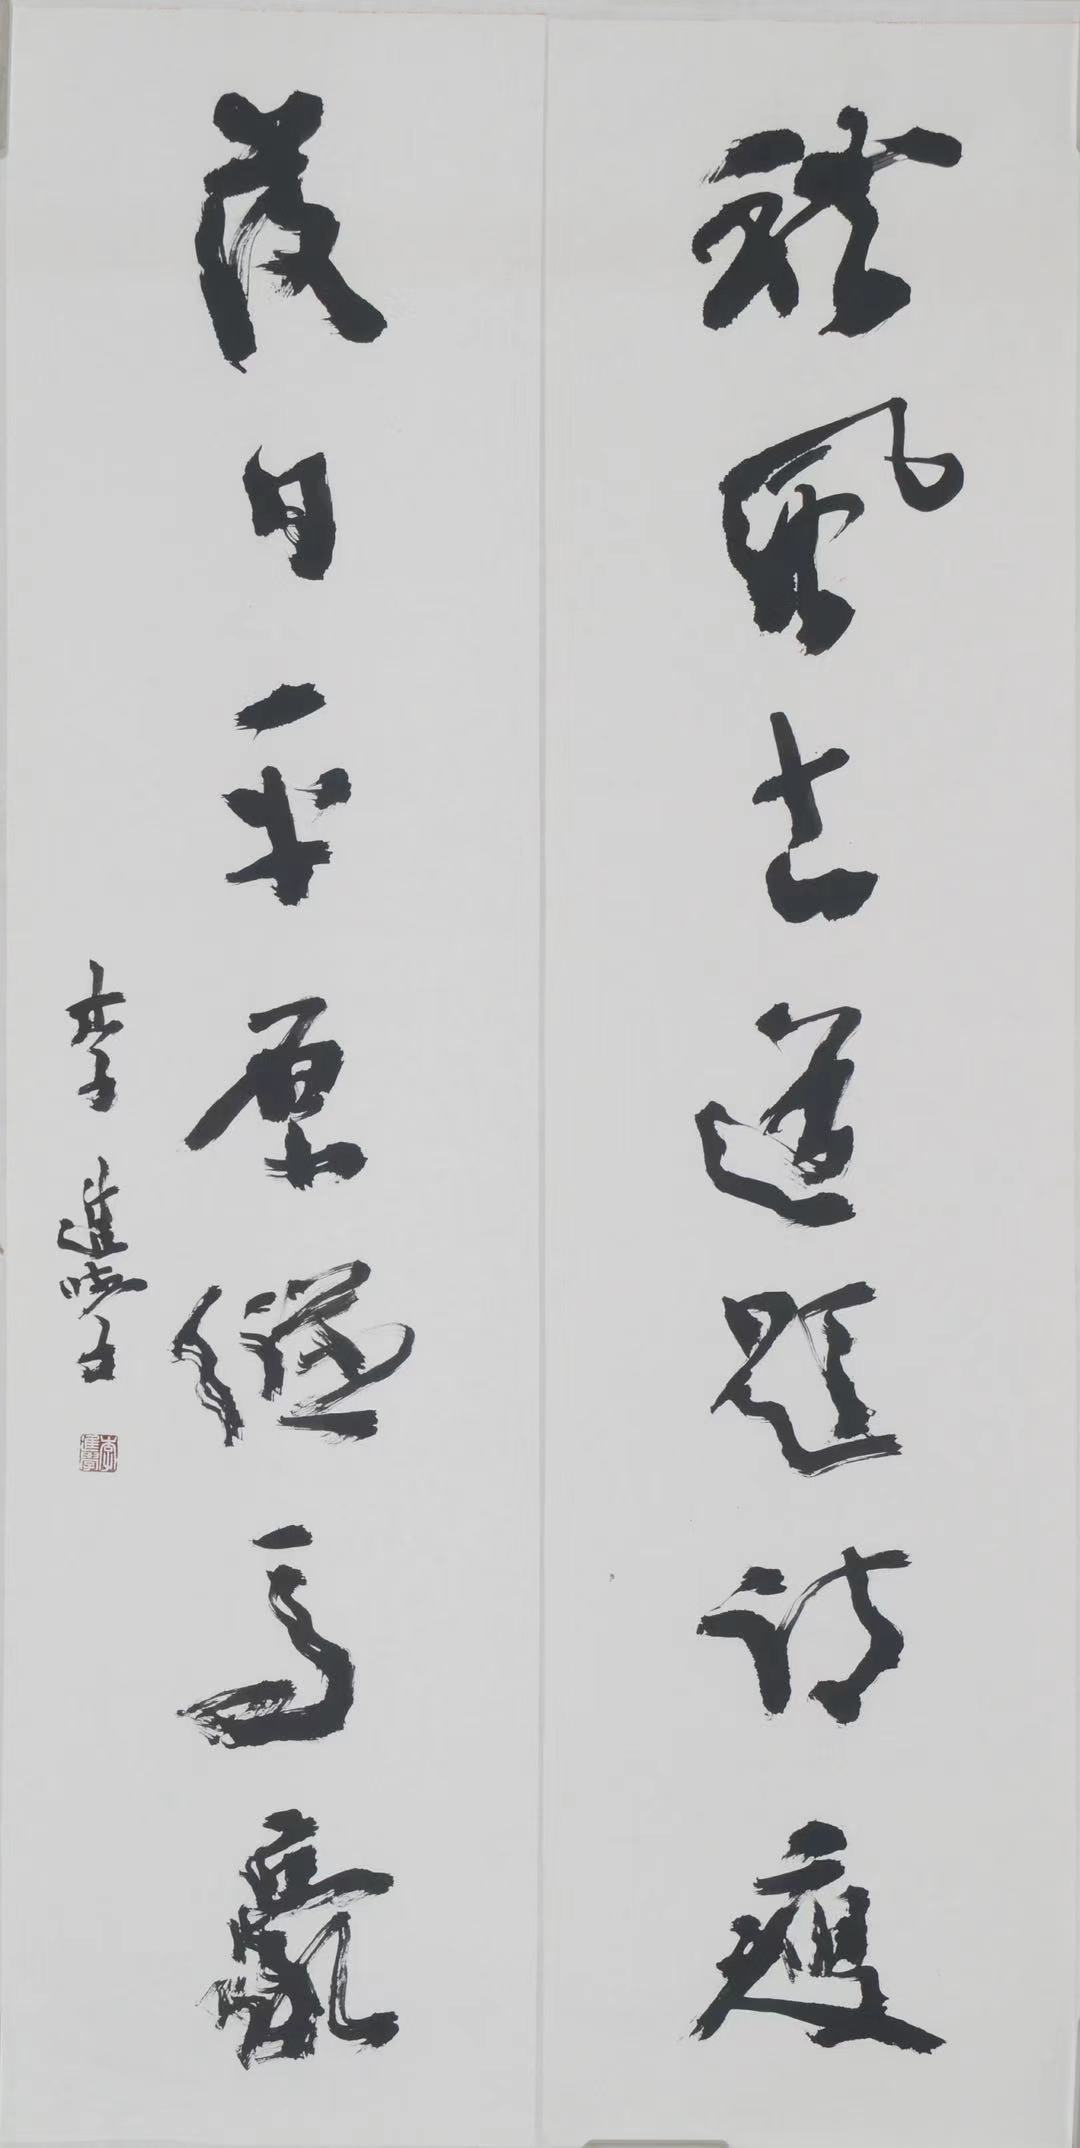 秋風古道題詩瘦
落日平原縱馬豪
李進學
李進學